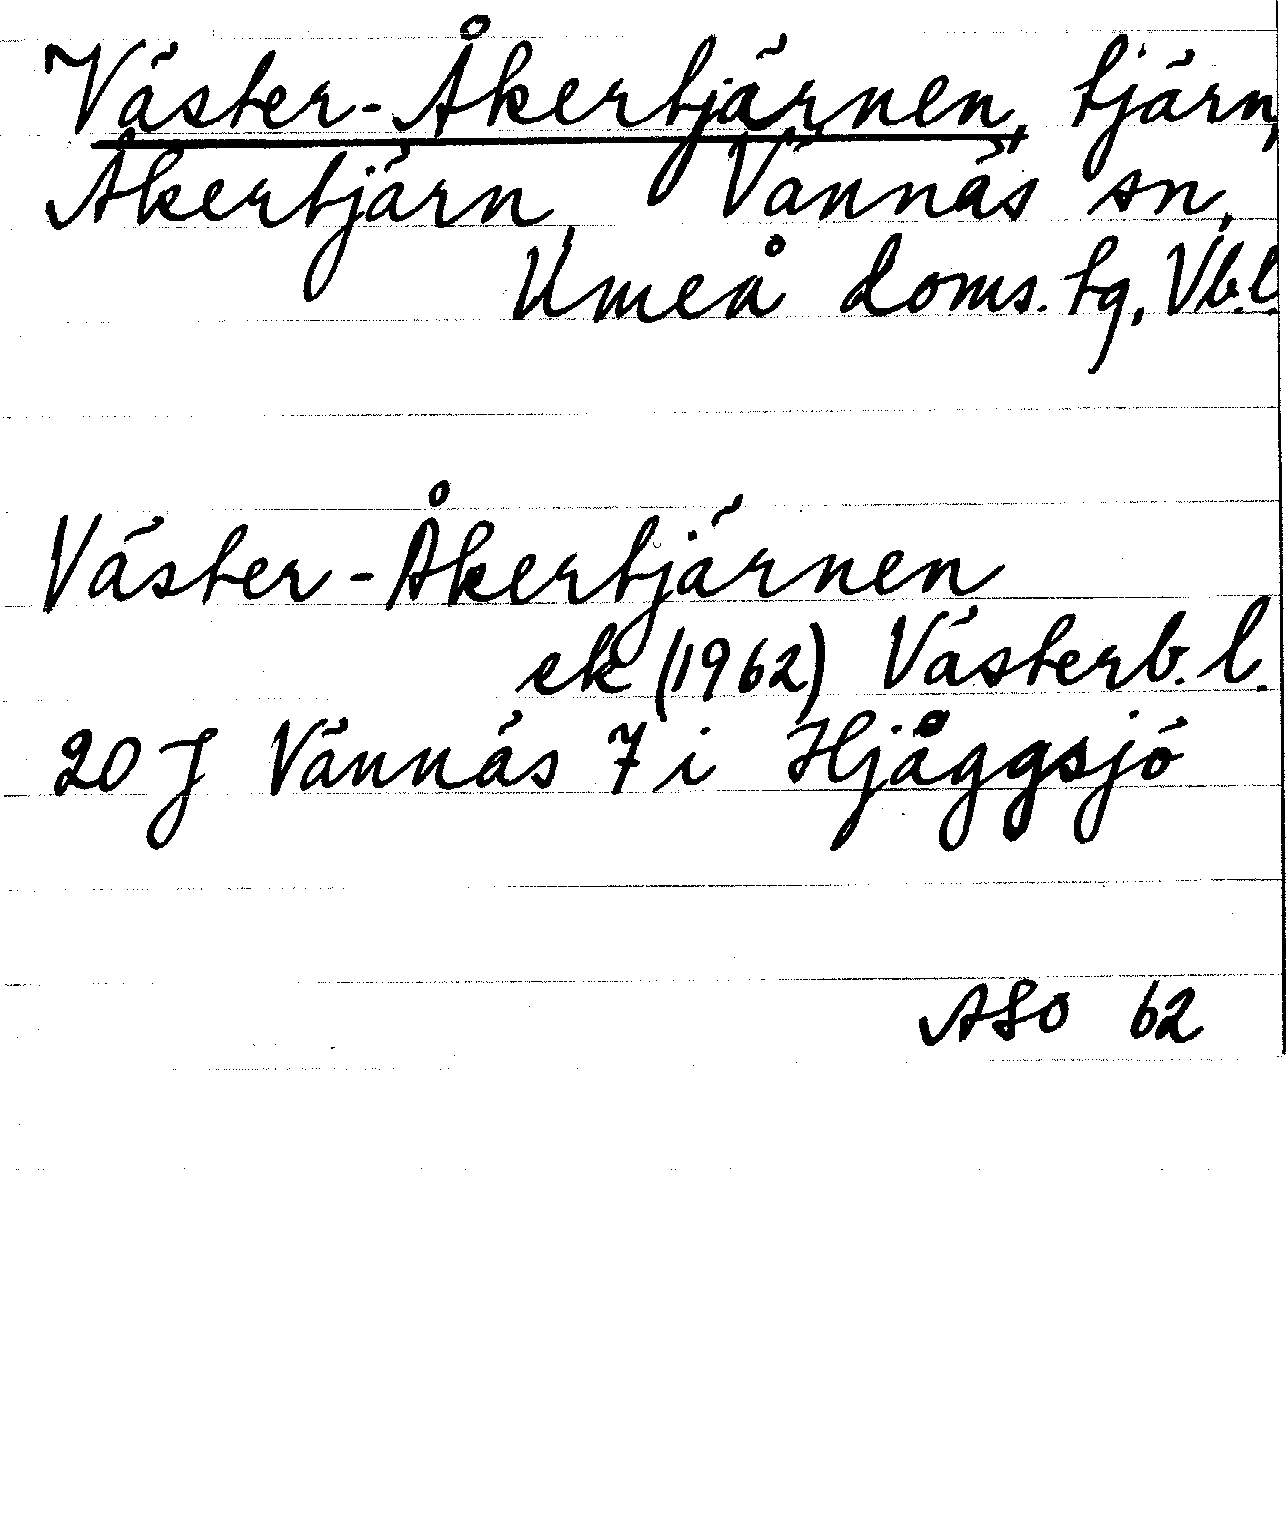 Väster-Åkertjärnen, tjärn,
Åkertjärn, Vännäs sn,
Umeå doms. tg, Vb.l.
Väster-Åkertjärnen
ek (1962) Västerb. l.
20 J Vännäs 7 i Hjåggsjö
ASO 62